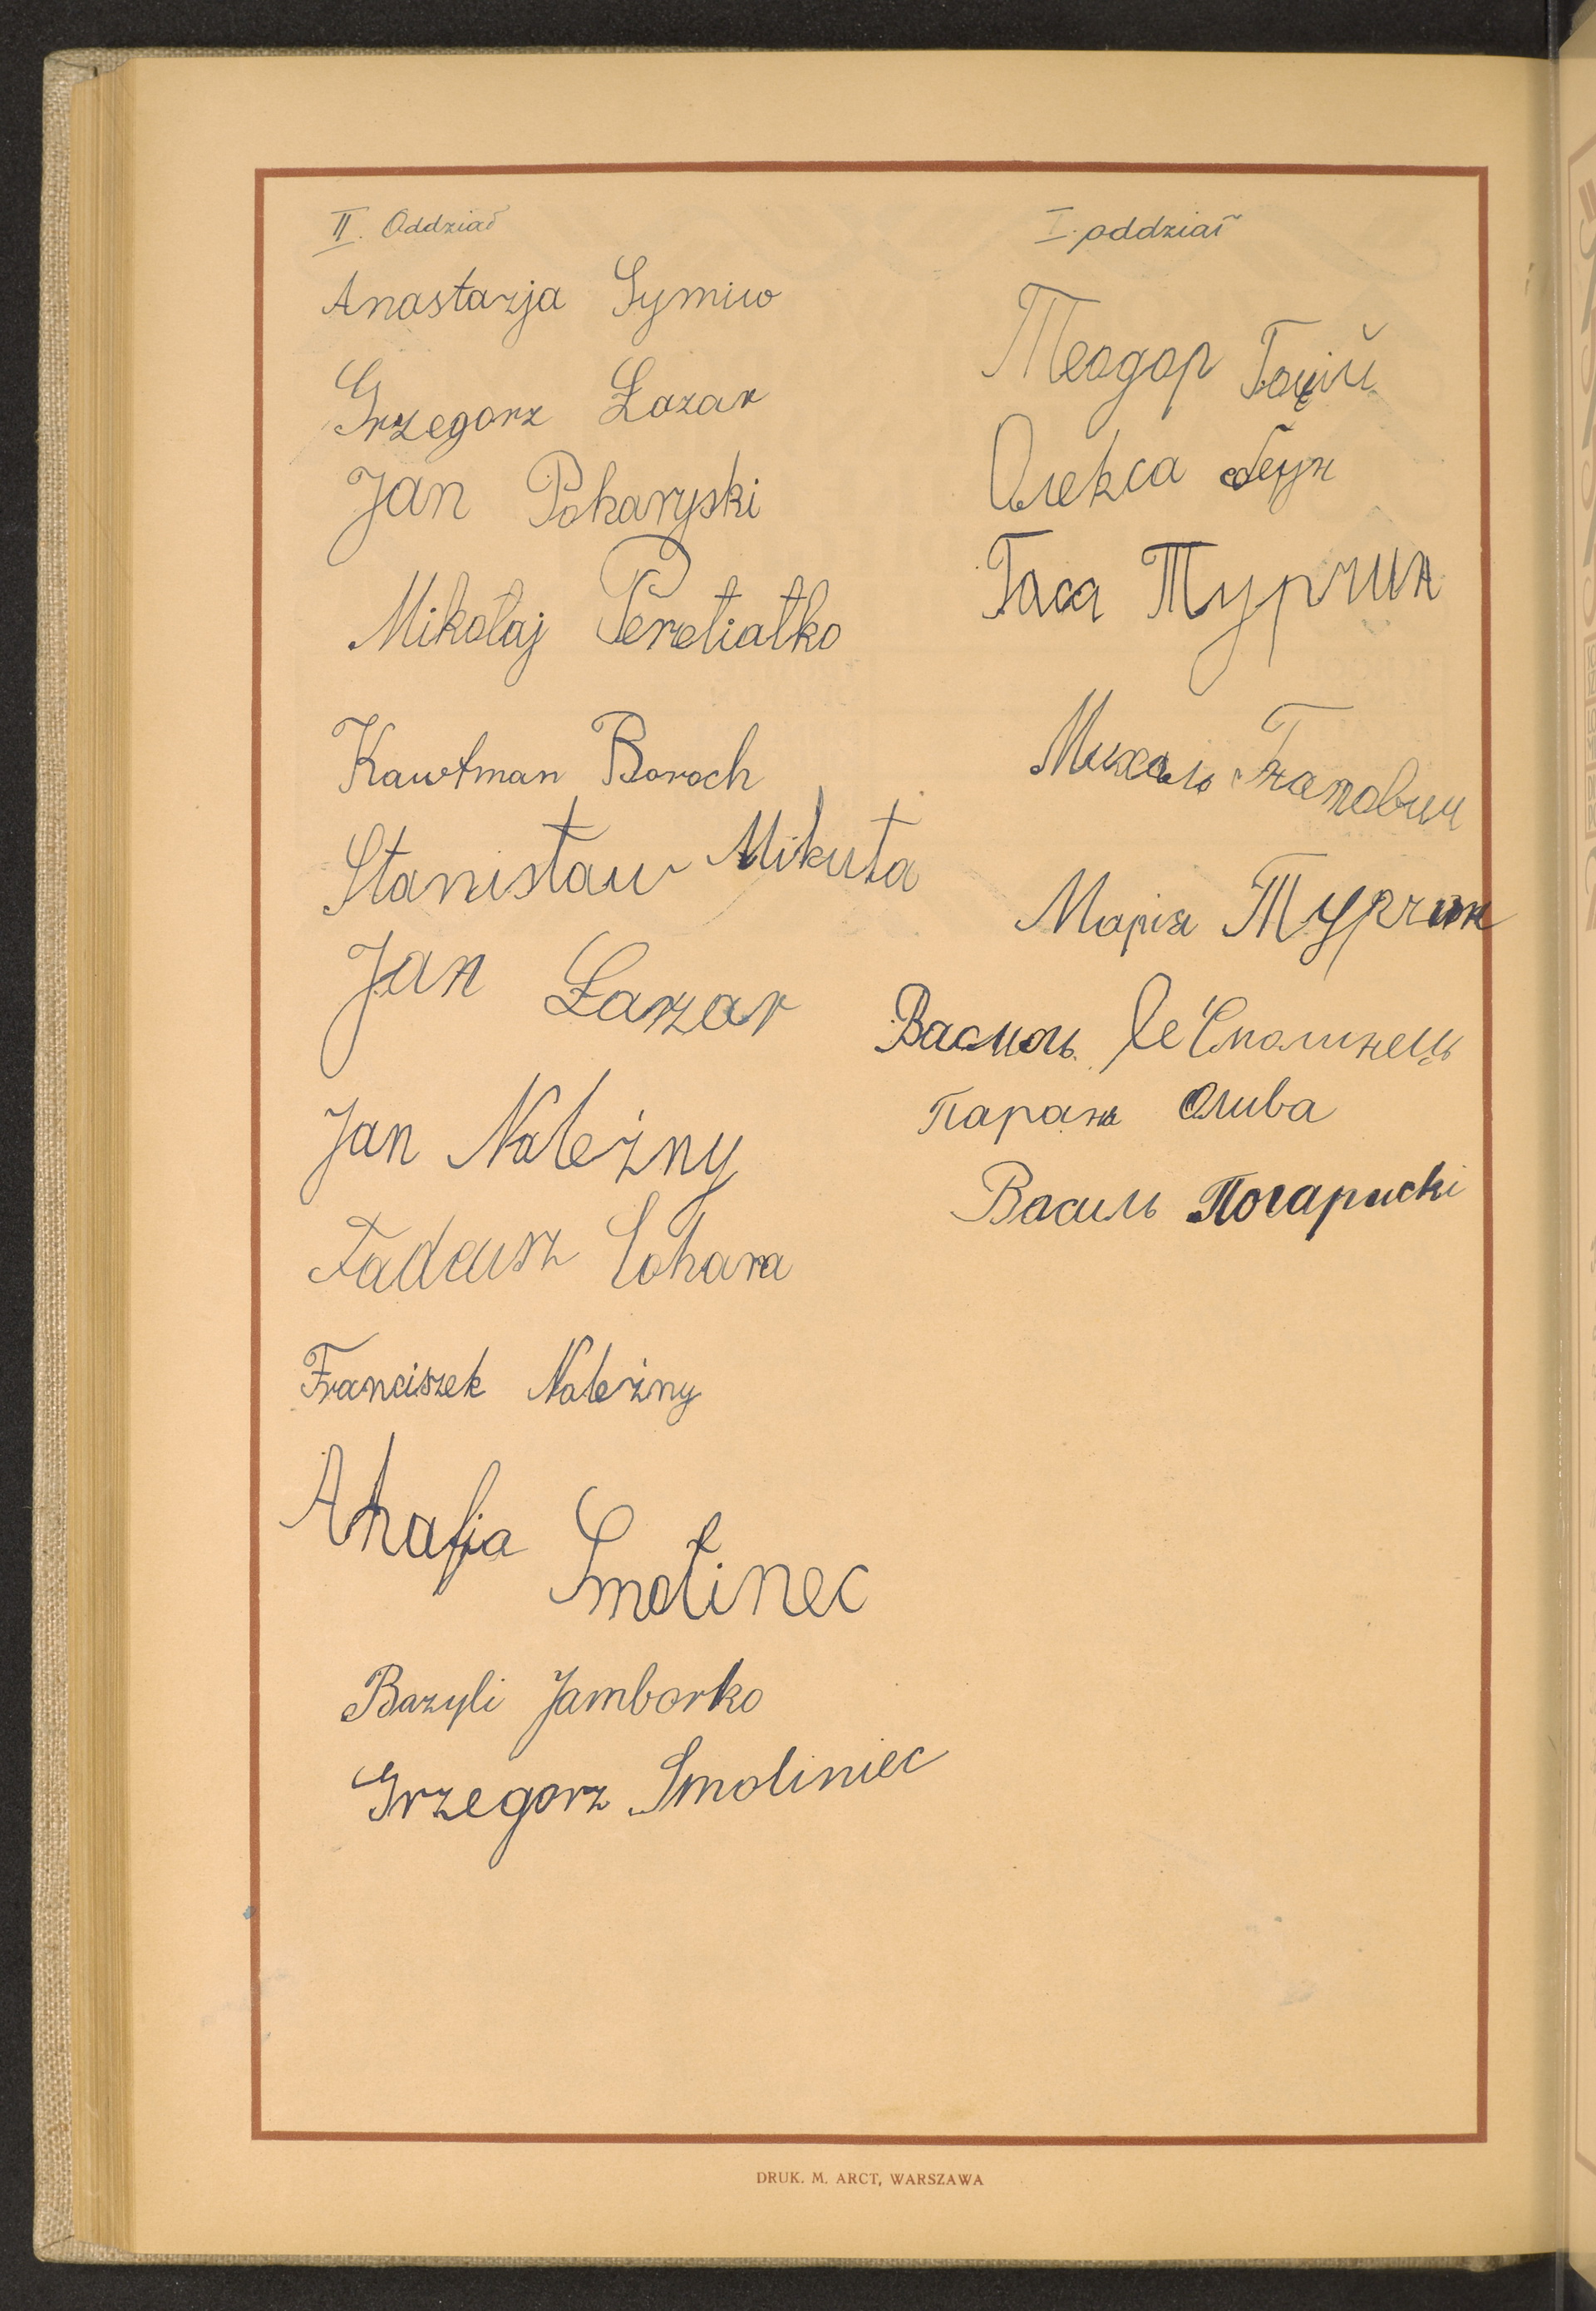 II. Oddział
Anastazja Symiw
Grzegorz Łazar
Jan Poharyski
Mikołaj Peretiatko
Kawtman Boroch
Stanisław Mikuta
Jan Łazar
Jan Należny
Tadeusz Cohara
Franciszek Należny
Ahafja Smolinec
Bazyli Jamborko
Grzegorz Smoliniec
I. oddział
Теодор Гоцій
Олекса
Гася Турчин
Михаль Гнатович
Марія Турчин
Василь Смолинець
Парань Олива
Василь Погариckі
DRUK. M. ARCT, WARSZAWA